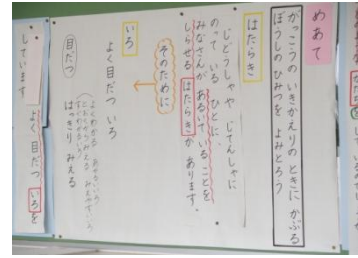 めあて
がっこうの いきかえりの ときに かぶる
ぼうしの ひみつを よみとろう
はたらき
じどうしゃや じてんしゃに
のって いる ひとに、
みなさんが あるいて いる ことを
しらせる はたらきが あります。
そのために
いろ
よく目だつ いろ
目だつ
はっきり みえる
よく目だつ いろを
しています